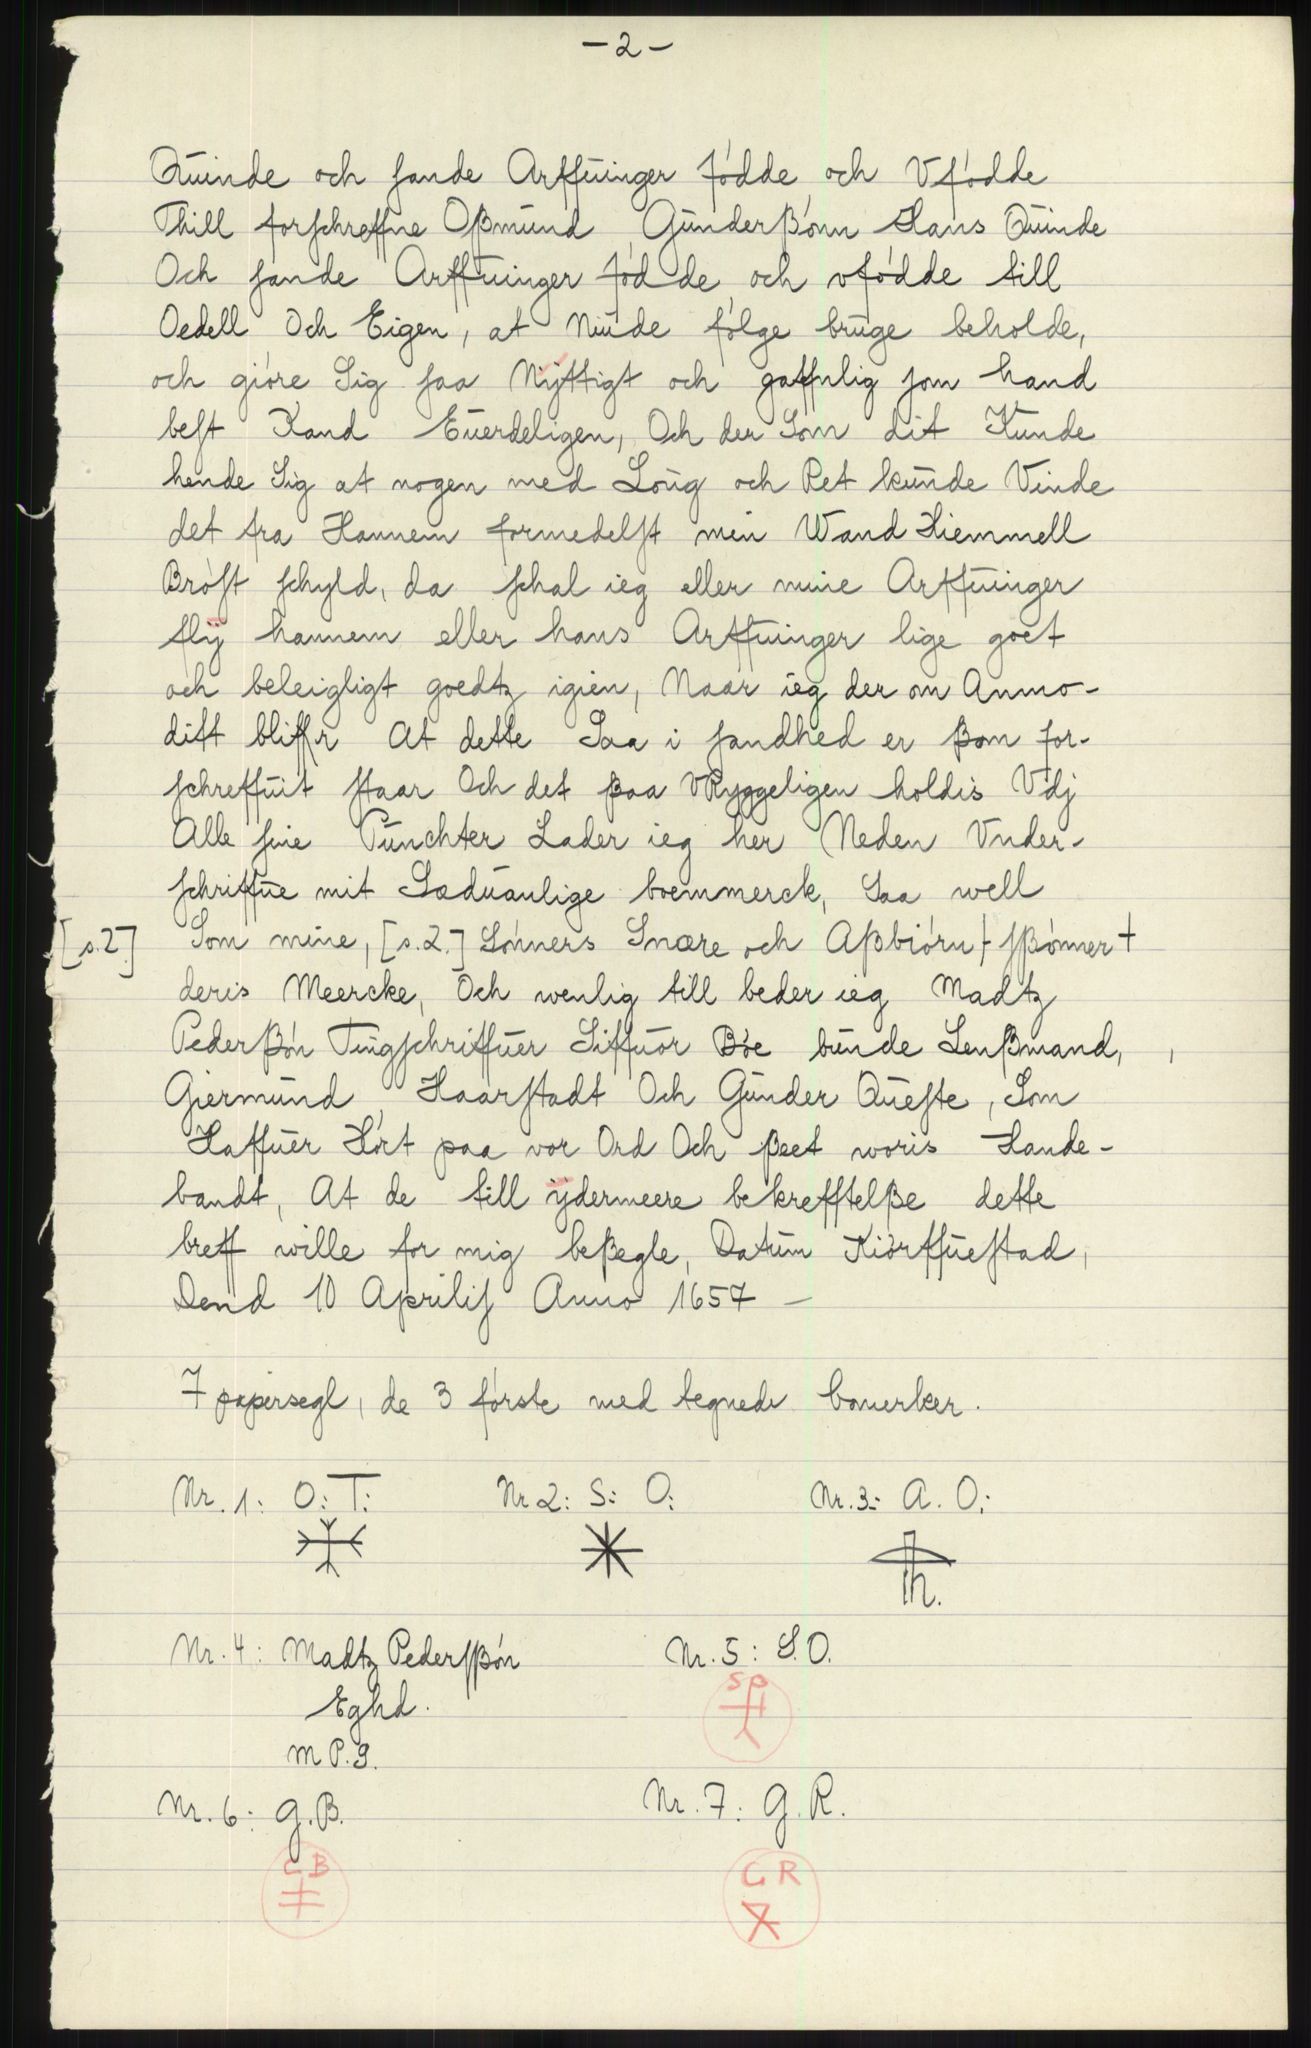 - 2 -
Quinde och sande Arffuinger fódde och Vfódde
Thill forschreffne Oßmund Gunderßónn Hans Quinde
Och sande Arffuinger fódde och vfódde till
Oedell Och Eigen, at Niude fólge bruge beholde,
och gióre Sig saa Nÿttigt och gaffnlig som hand
best Kand Euerdeligen, Och der Som dit Kunde
hende Sig at nogen med Loug och Ret kunde Vinde
det fra Hannem formedelst min Wand Hiemmell
Bróst schyld, da schal ieg eller mine Arffuinger
flÿ hannem eller hans Arffuinger lige goet
och beleigligt goedtz igien, Naar ieg der om Anmo-
dist bliffr At dette Saa i sandhed er ßom for-
schreffuit staar Och det ßaa VRyggeligen holdis Vdj
Alle sine Punchter Lader ieg her Neden Vnder-
schriffue mit Sæduanlige boemmerck, Saa well
[s.2] Som mine, [s.2.] Sónners Snare och Aßbiórn + sßónner +
deris Meercke, Och wenlig till beder ieg Madtz
Pederßón Tingschriffuer Siffuor Bóe bunde Lenßmand,
Giermund, Haarstadt Och Gunder Queste, Som
Haffuer Hórt paa vor Ord Och ßeet woris Hande-
bandt, At de till ÿdermeere bekrefftelße dette
breff wille for mig beßegle, Datum Kiórffuestad,
Dend 10 Aprilis Anno 1657 -
7 papersegl, de 3 fórste med tegnede bomerker.
Nr. 1: O: T: Nr 2: S: O: Nr. 3: A. O:
Nr. 4: Madtz Pedersßón Nr. 5: S. O.
SP
Eghd.
M P. S.
Nr. 6: G. B. Nr. 7: G. R.
C B G R